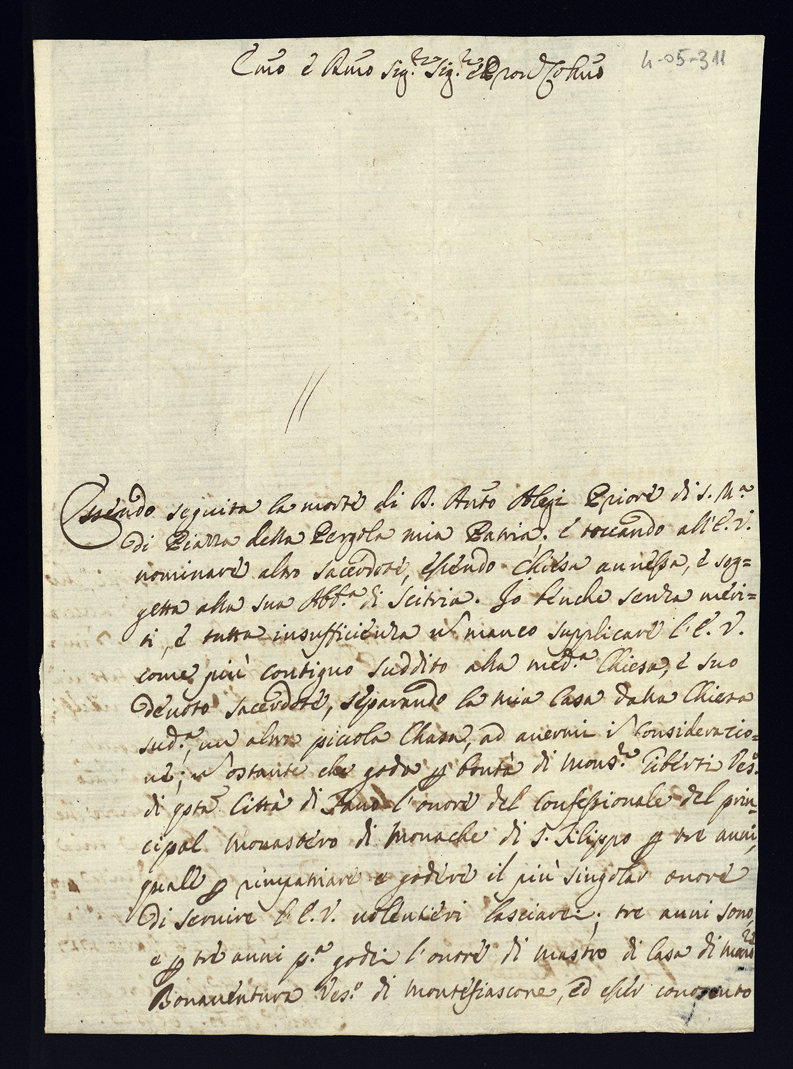 Emo è Rmo Sig.re Sig.re è Pron Colmo
4-05-311
Essendo seguita la morte di D. Anto Alegi Priore di S. Ma
di Piazza della Pergola mia Patria. è toccando all'E. V.
nominare altro Sacerdote, essendo Chiesa annessa, è sog=
getta alla sua Abb.a di Scitria. Io benche senza meri=
ti, è tutta insufficienza ñ manco supplicare l'E. V.
come più contiguo suddito alla med.a Chiesa, è suo
devoto Sacerdote, separando la mia Casa dalla Chiesa
sud.a, un altra piccola Chasa, ad avermi in consideracio=
ne; ñ ostante che goda p bontà di Mons.re Ves.o
di qsta Città di Fano l'onore del Confessionale del prin=
cipal Monastero di Monache di S. Filippo p tre anni,
quale p rimpatriare e godere il più singolar onore
di servire l'E. V. volentieri lasciarei; tre anni sono,
e p tre anni p.a godei l'onore di Mastro di Casa di Mons.re
Bonaventura Ves.o di Montefiascone, ed esser conosciuto